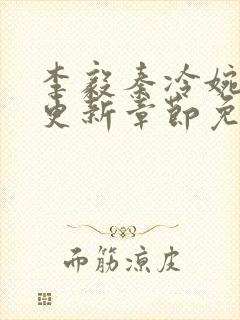 李毅秦冷婉
更新章节免
而筋凉皮